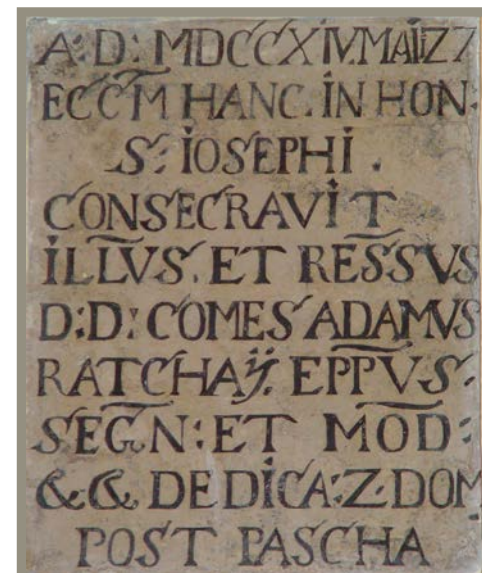 A: D: MDCCXIV. MAII Z7
ECCM̃ HANC. IN HON:
S: IOSEPHI.
CONSECRAVIT
ILLVS̃. ET RESSṼS
D: D: COMES ADAMVS
RATCHAÿ. EPPṼS.
SEGÑ: ET MOD̃:
&. &. DEDICA: Z. DOM
POST PASCHA